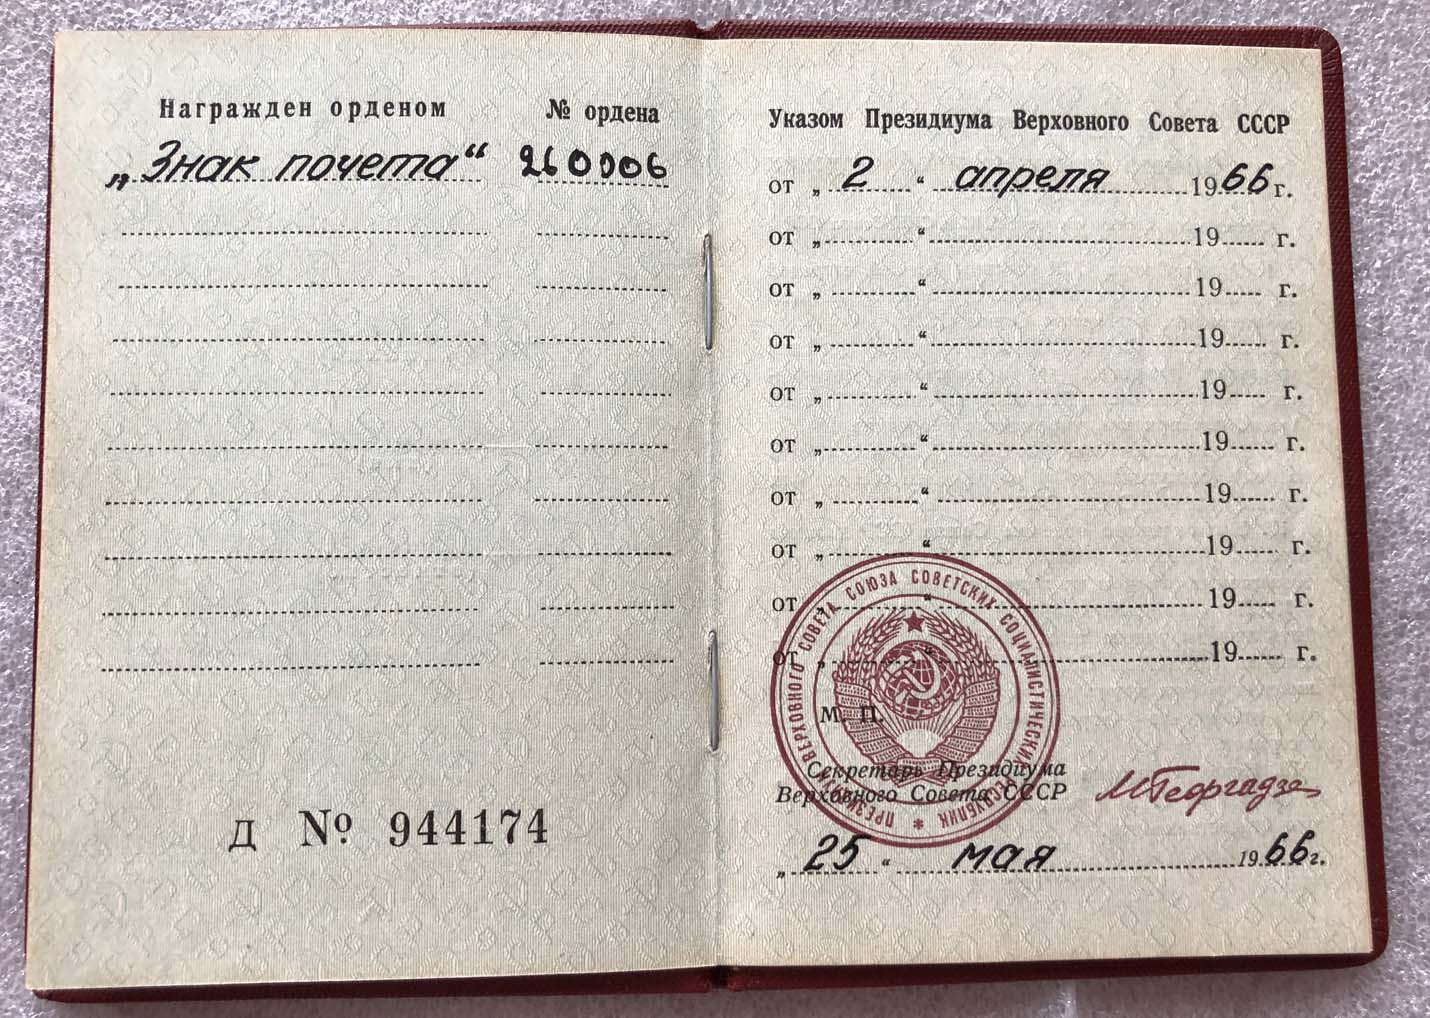 Награжден орденом
№ ордена
„Знак почета“ 260006
Д № 944174
Указом Президиума Верховного Совета СССР
от „ 2 “ апреля 1966 г.
от „ “ 19 г.
от „ “ 19 г.
от „ “ 19 г.
от „ “ 19 г.
от „ “ 19 г.
от „ “ 19 г.
от „ “ 19 г.
от „ “ 19 г.
от „ “ 19 г.
ПРЕЗИДИУМ ВЕРХОВНОГО СОВЕТА СОЮЗА СОВЕТСКИХ СОЦИАЛИСТИЧЕСКИХ РЕСПУБЛИК *
М. П.
Секретарь Президиума
Верховного Совета СССР
М Георгадзе
„ 25 “ мая 1966 г.